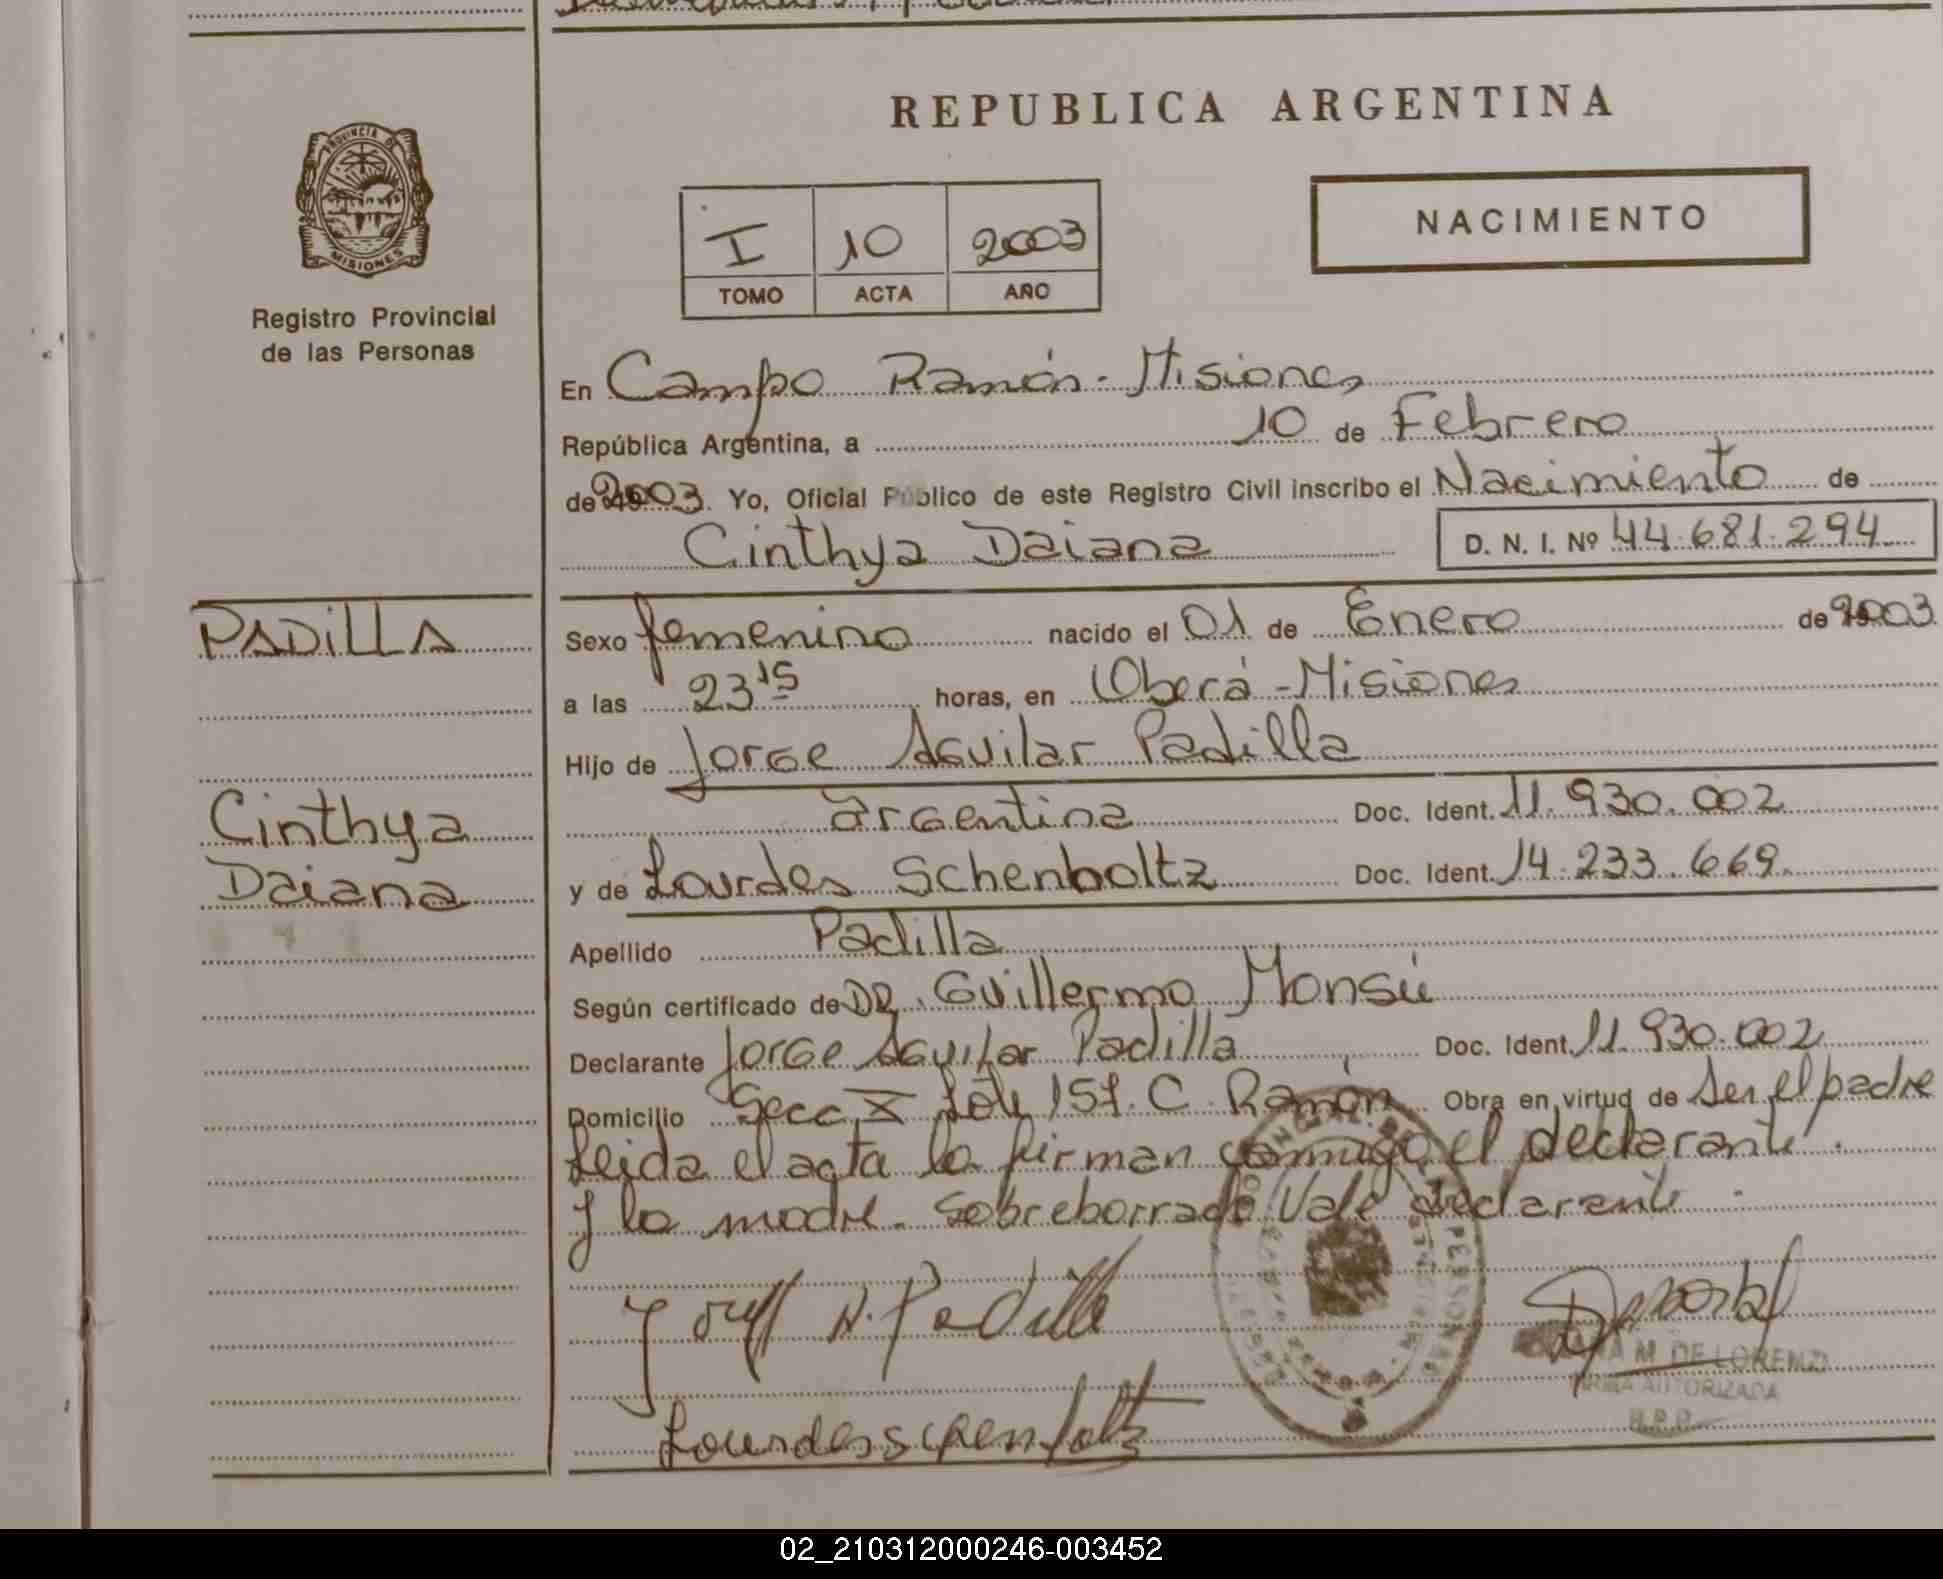 PROVINCIA DE
MISIONES
Registro Provincial
de las Personas
REPUBLICA ARGENTINA
I 10 2003
TOMO ACTA AÑO
NACIMIENTO
En Campo Ramón - Misiones
República Argentina, a 10 de Febrero
de 2003. Yo, Oficial Público de este Registro Civil inscribo el Nacimiento de
Cinthya Daiana D. N. I. Nº 44.681.294
PADILLA
Cinthya
Daiana
Sexo femenino nacido el 01 de Enero de 2003
a las 23 15 horas, en Oberá - Misiones
Hijo de Jorge Aguilar Padilla
argentina Doc. Ident. 11.930.002
y de Lourdes Schenboltz Doc. Ident. 14.233.669
Apellido Padilla
Según certificado de DR. Guillermo Monsú
Declarante Jorge Aguilar Padilla Doc. Ident. 11.930.002
Domicilio Secc X Lote 157. C. Ramón Obra en virtud de Ser el padre
Leida el acta la firman conmigo el declarante.
y la madre. Sobreborrado Vale declarante.
A. Padilla
Lourdes schenboltz
M. DE LORENZI
FIRMA AUTORIZADA
R.P.P.
02_210312000246-003452